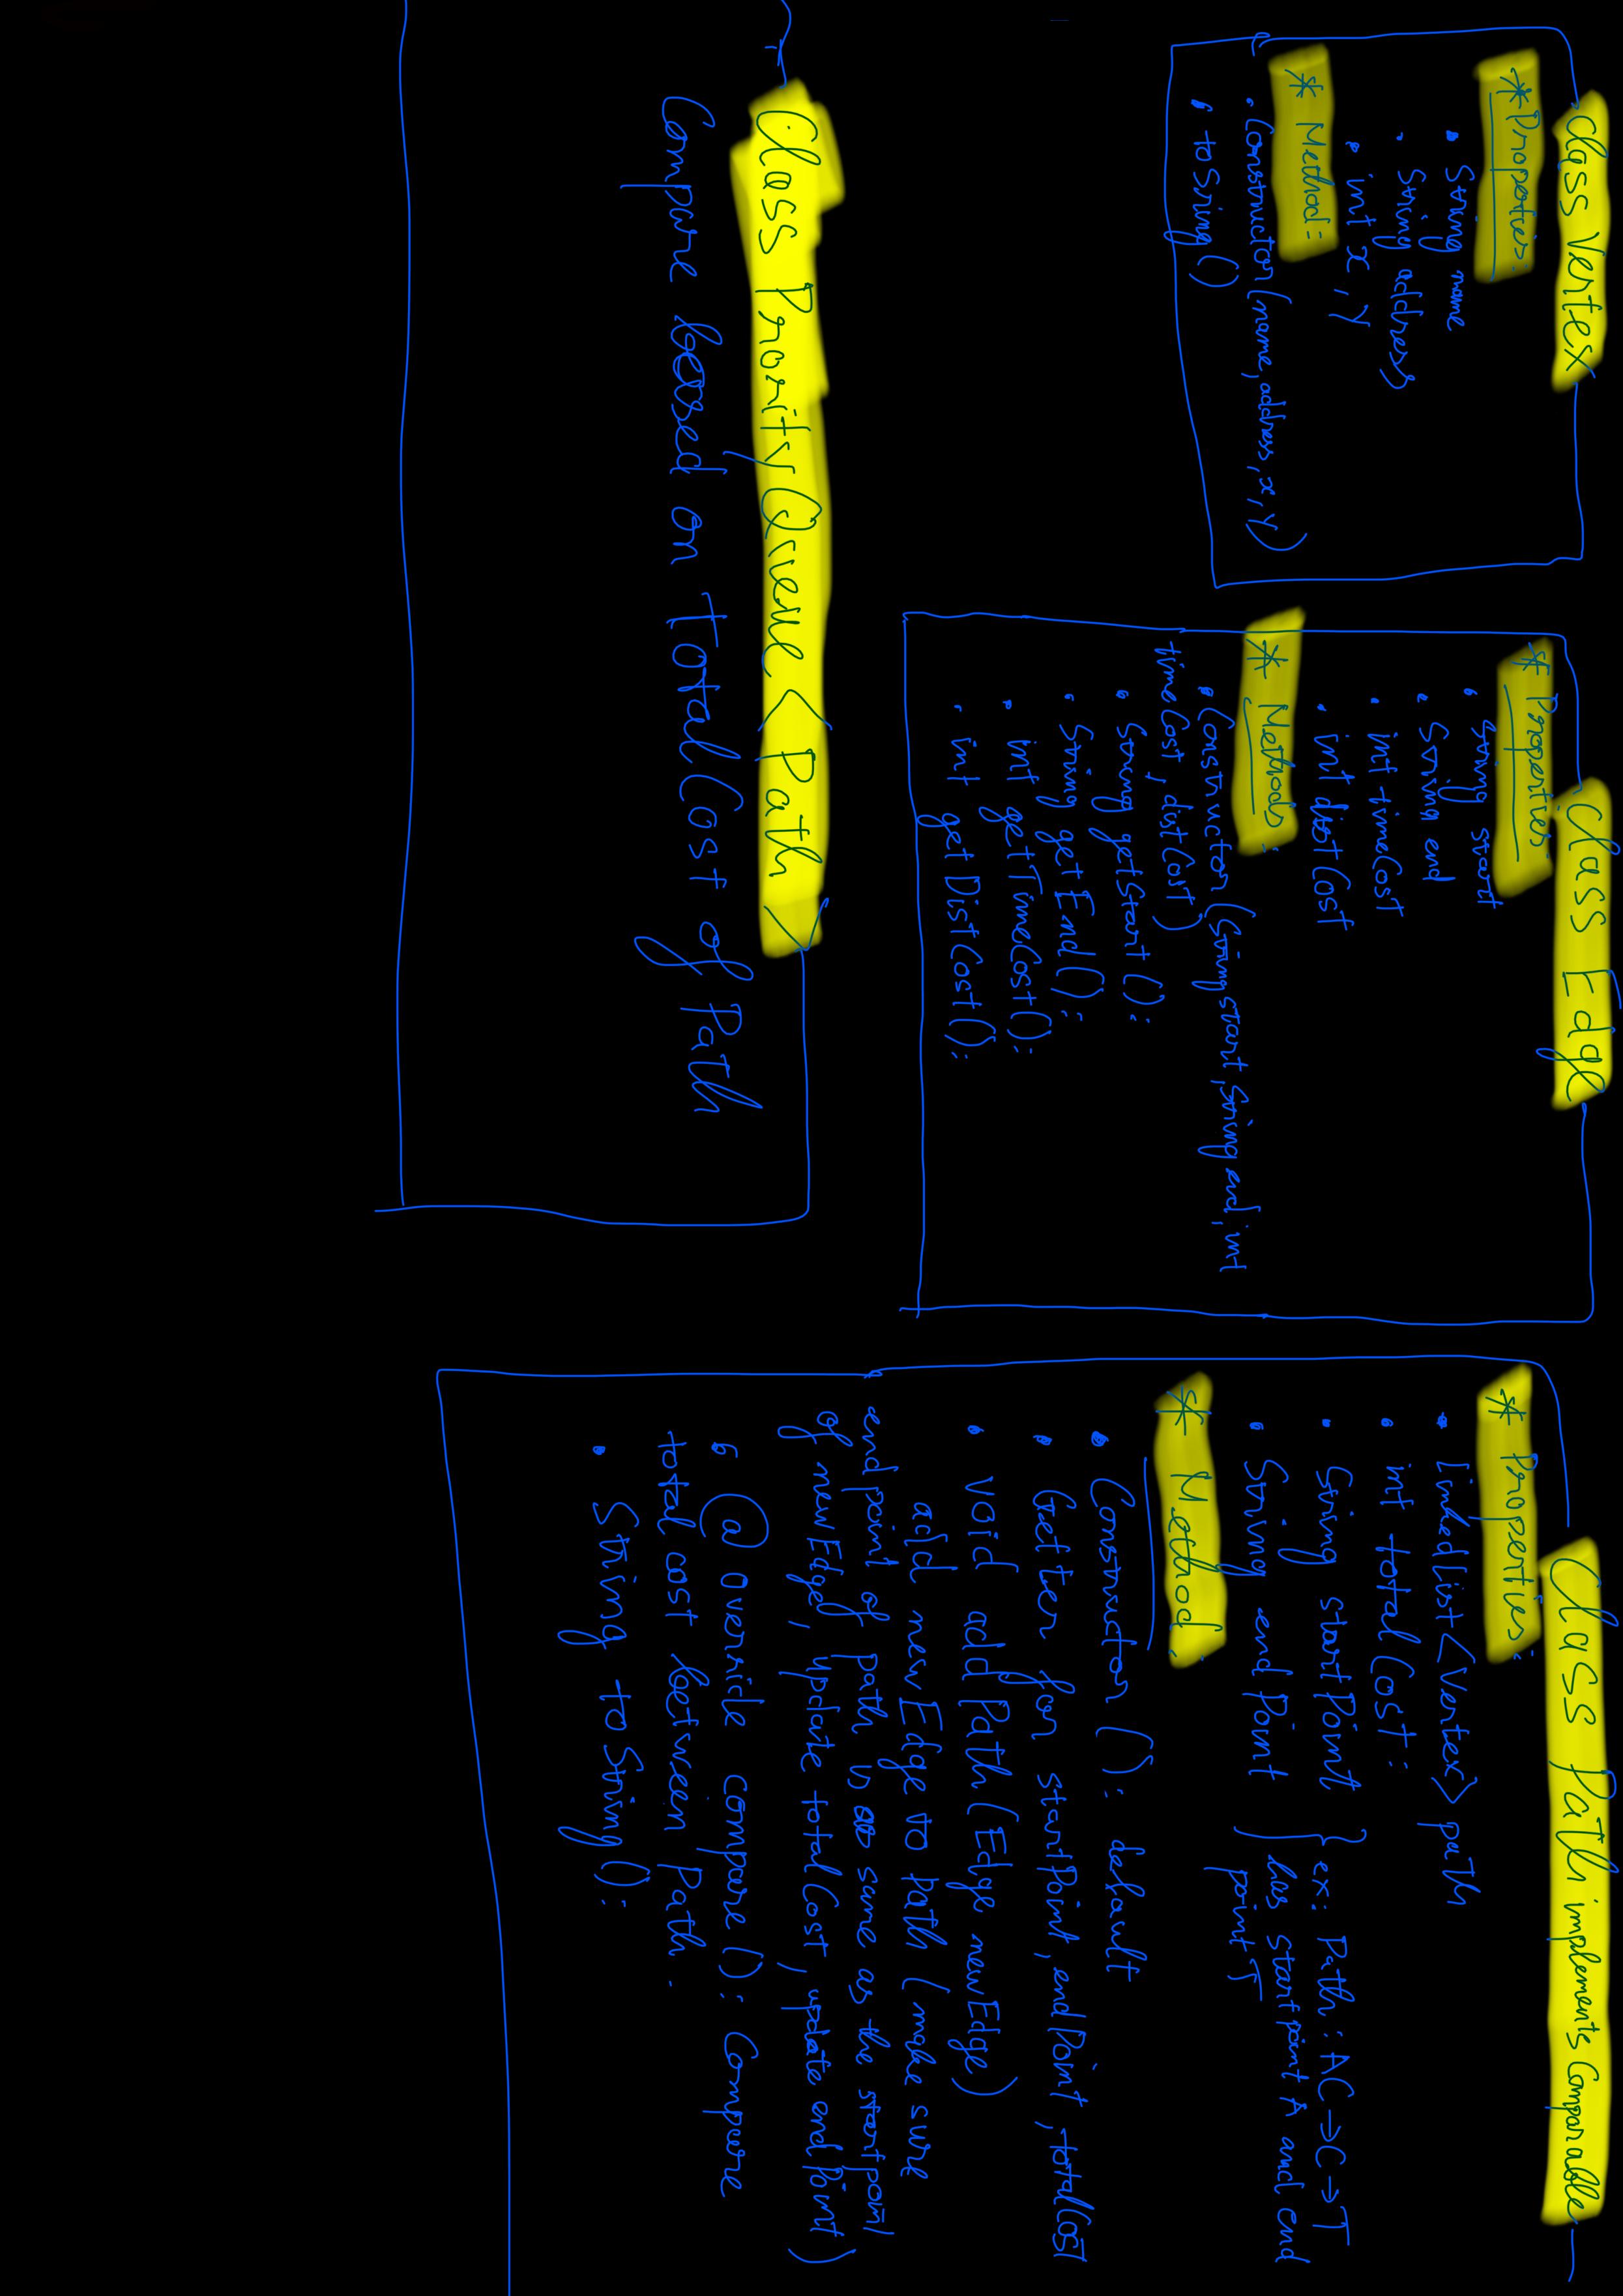 Class Vertex
* Properties:
• String name
• String address
• int x, y
* Method:
• Constructor (name, address, x, y)
• toSring ()
Class Edge
* Properties:
• String start
• String end
• int timeCost
• int distCost
* Methods:
• Constructor (String start, String end, int
timeCost, distCost)
• String getStart ():
• String getEnd ():
• int getTimeCost():
• int getDistCost():
Class Path implements Comparable
* Properties:
• LinkedList<Vertex> path
• int totalCost:
• String startPoint
• String endPoint
ex: Path: AC→C→T
has startpoint A and end
point T
* Method:
• Constructor (): default
• Getter for startPoint, endPoint, totalCost
• void addPath (Edge newEdge)
add newEdge to Path (make sure
endpoint of path is same as the startpoint
of newEdge, update totalCost, update endPoint)
• @ override compare (): Compare
total cost between Path.
• String toString ():
Class ProrityQueue<Path>
Compare based on totalCost of Path